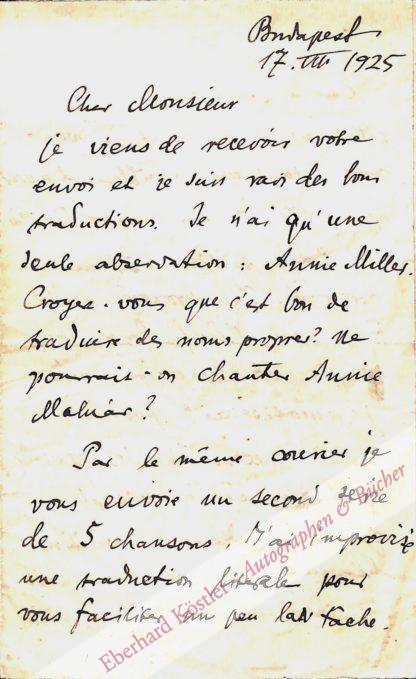 Budapest
17. III 1925
Cher Monsieur
je viens de recevoir votre
envoi et je suis ravi des bons
traductions. Je n'ai qu'une
seule observation : Annie Miller.
Croyez-vous que c'est bon de
traduire des noms propres? Ne
pourrait-on chanter Annie
Molnár?
Par le même courrier je
vous envoie un second serie
de 5 chansons. J'ai improvisé
une traduction literale pour
vous faciliter un peu la tache.
Eberhard Köstler, Autographen & Bücher